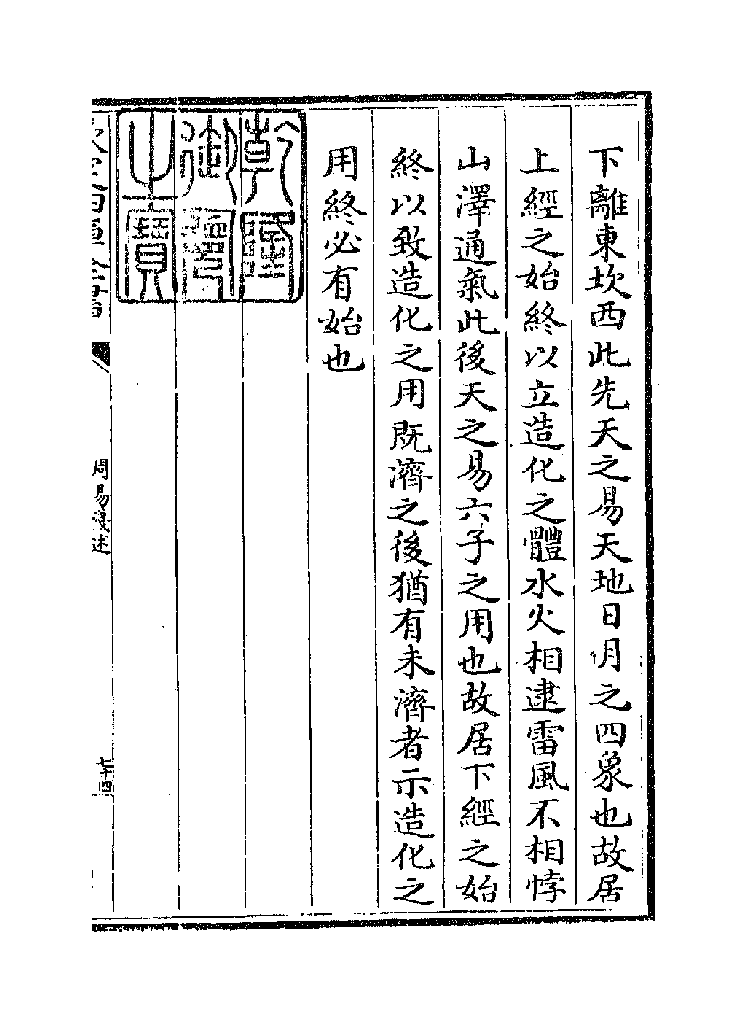 下離東坎西此先天之易天地日月之四象也故居
上經之始終以立造化之體水火相逮雷風不相悖
山澤通氣此後天之易六子之用也故居下經之始
終以致造化之用既濟之後猶有未濟者示造化之
用終必有始也
乾隆
御覽
之寶
周易淺述
七十四